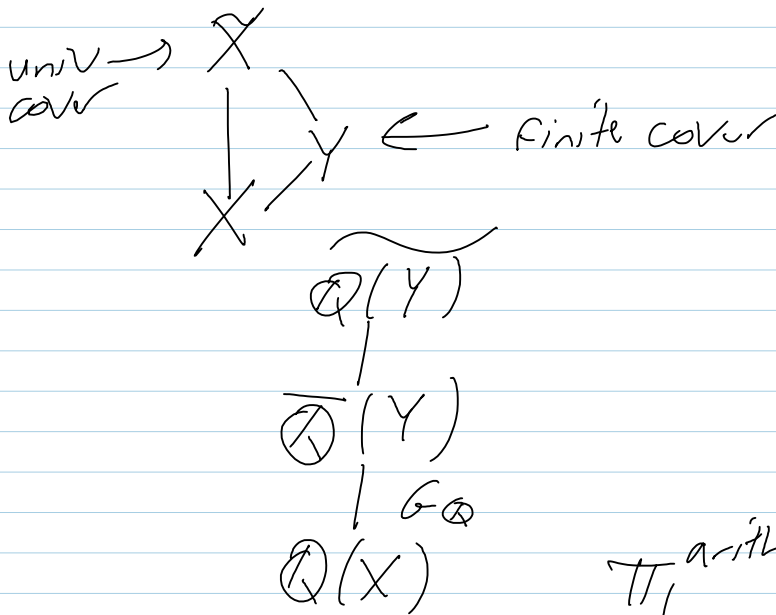 univ → X̃
cover
Y ← finite cover
X
\widetilde{Q(Y)}
\overline{Q}(Y)
G_Q
Q(X)
π₁^{arith}